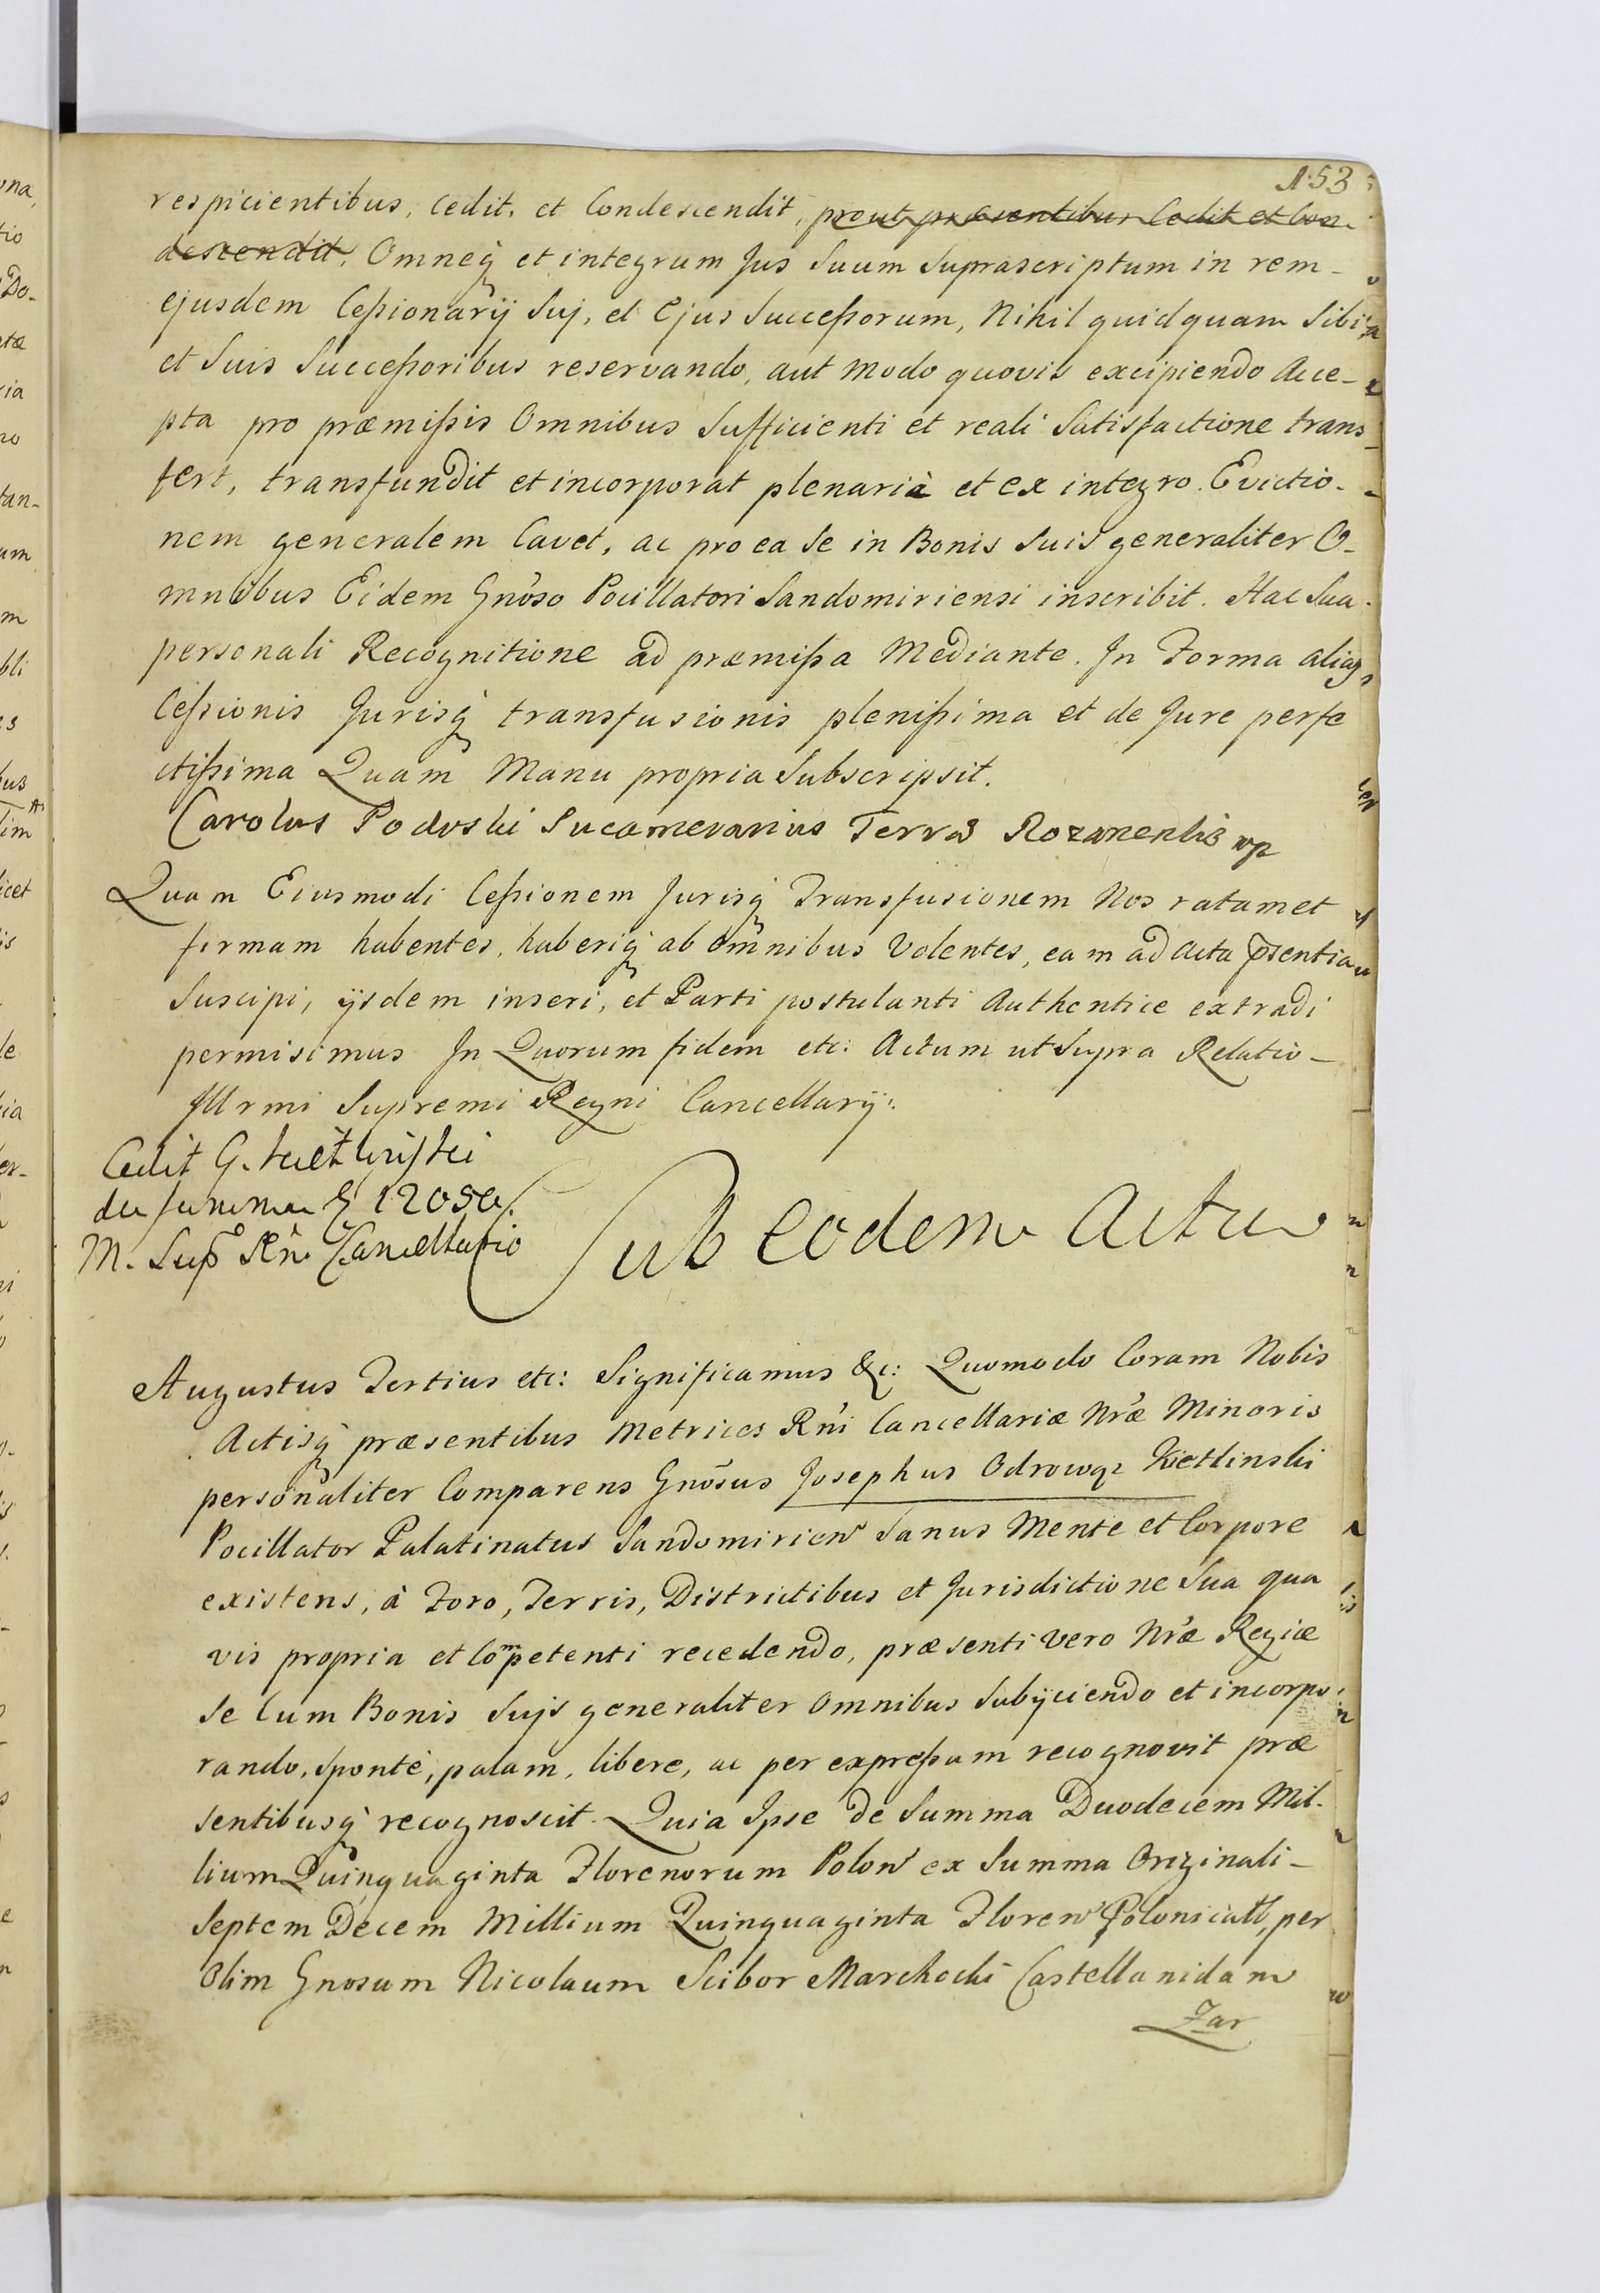 153
respicientibus, Cedit, et Condescendit, prout præsentibus Cedit et Con-
descendit, Omneq̀ et integrum Jus Suum Suprascriptum in rem-
ejusdem Ceßionarij Suj, et Ejus Succeßorum, Nihil quidquam Sibi
et Suis Succeßoribus reservando, aut Modo quovis excipiendo Acce-
pta pro præmißis Omnibus Sufficienti et reali Satisfactione trans-
fert, transfundit et incorporat plenariè et ex integro. Evictio-
nem generalem Cavet, ac pro ea Se in Bonis Suis generaliter O-
mnibus Eidem Gnoso Pocillatori Sandomiriensi inscribit. Hac Sua
personali Recognitione ad præmißa Mediante. In Forma aliàs
Ceßionis Jurisq̀ transfusionis plenißima et de Jure perfe
ctißima Quam Manu propria Subscripsit.
Carolus Podoski Sucamerarius Terræ Rozanensis mp
Quam Eiusmodi Ceßionem Jurisq̀ Transfusionem Nos ratam et
firmam habentes, haberiq̀ ab omnibus Volentes, eam ad Acta p̄sentia
Suscipi, ijsdem inseri, et Parti postulanti Authentice extradi
permisimus In Quorum fidem etc: Actum ut Supra Relatio-
Illrmi Supremi Regni Cancellarij:
Cedit G. Kietlinski
de summa 12050
M. Sup Rni Cancellario
Sub eodem Actu
Augustus Tertius etc: Significamus &c: Quomodo Coram Nobis
Actisq̀ præsentibus Metrices Rni Cancellariæ Nræ Minoris
personaliter Comparens Gnosus Josephus Odrowąz Kietlinski
Pocillator Palatinatus Sandomirien Sanus Mente et Corpore
existens, à Foro, Terris, Districtibus et Jurisdictione Sua qua
vis propria et Competenti recedendo, præsenti vero Nræ Regiæ
Se Cum Bonis Sujs generaliter Omnibus Subijciendo et incorpo
rando, Spontè, palam, libere, ac per expreßum recognovit præ
sentibusq̀ recognoscit. Quia Ipse de Summa Duodecem Mil-
lium Quinquaginta Florenorum Polon ex Summa Originali-
Septem Decem Millium Quinquaginta Floren Polonicall, per
Olim Gnosum Nicolaum Scibor Marchocki Castellanidam
Zar